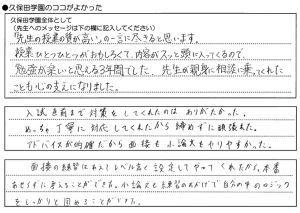 ●久保田学園のココがよかった
久保田学園全体として
(先生へのメッセージは下の欄に記入してください)
「先生の授業の質が高い」の一言に尽きると思います。
授業ひとつひとつがおもしろくて、内容がスッと頭に入ってくるので、
勉強が楽しいと思える3年間でした。先生が親身に相談に乗ってくれた
ことも心の支えになりました。
入試直前まで対策をしてくれたのはありがたかった。
めっちゃ丁寧に対応してくれたから諦めずに頑張れた。
アドバイスが的確だから面接も小論文もやりやすかった。
面接の練習はあえてレベル高く設定してやってくれたから、本番
あせらずに考えることができた。小論文も練習のおかげで自分の中のロジック
をしっかりと固めることができた。